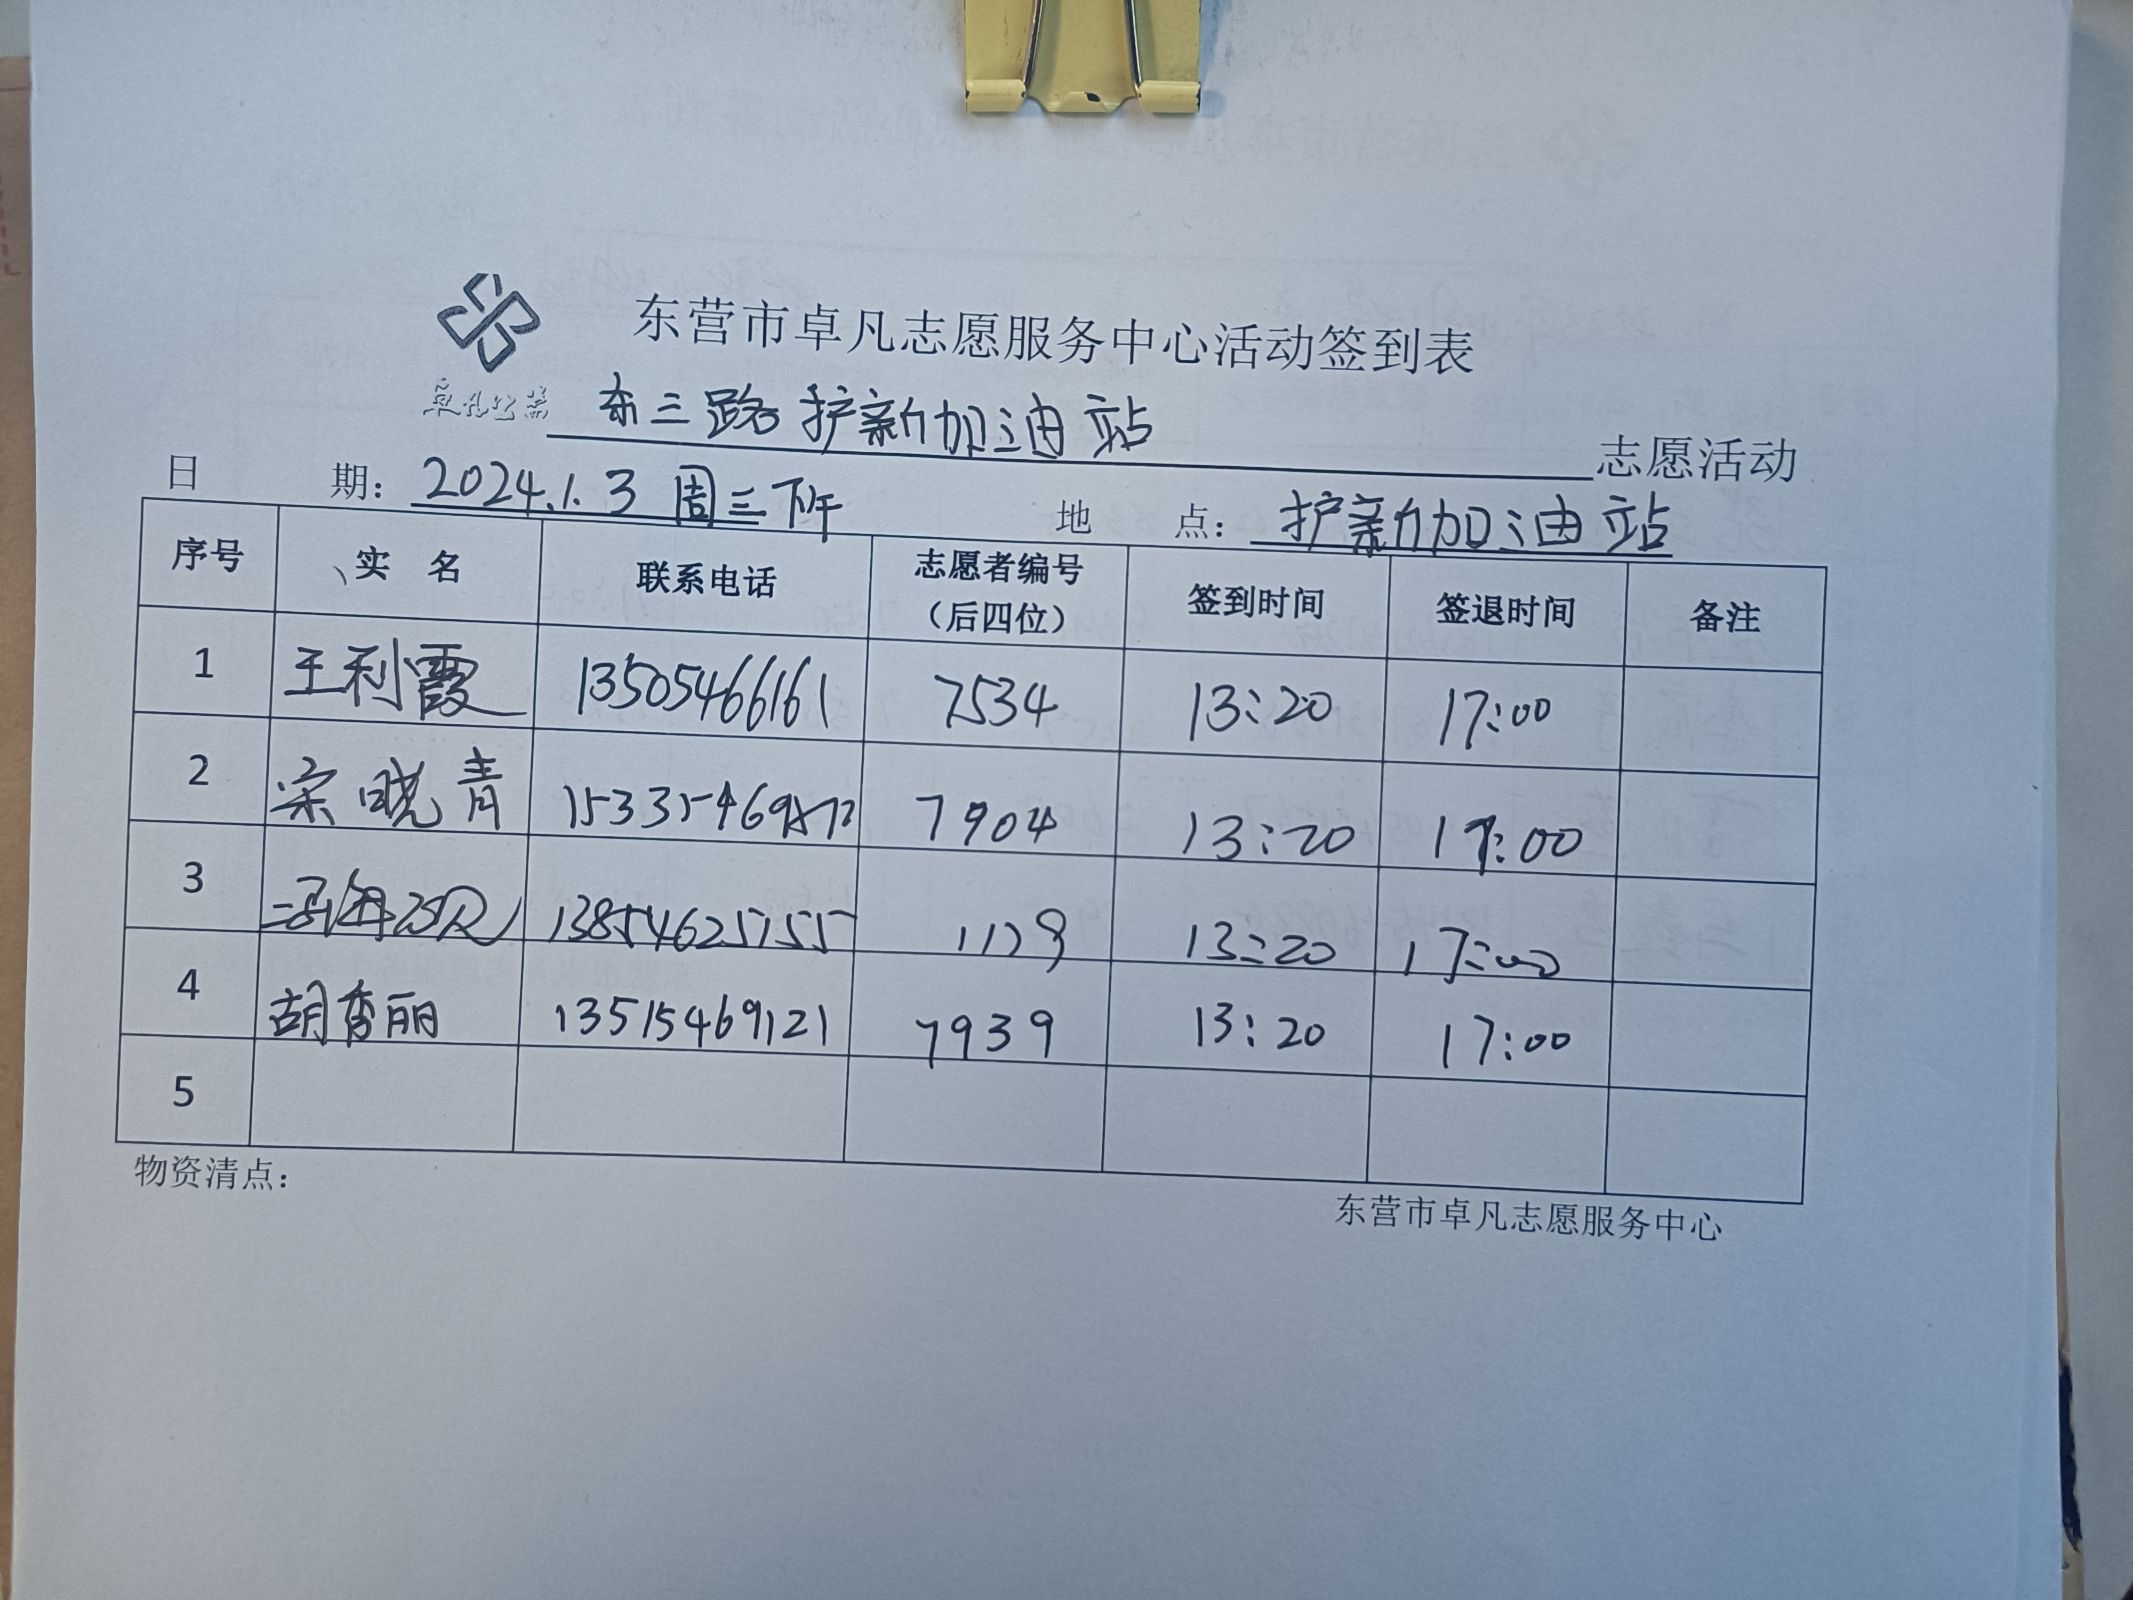 东营市卓凡志愿服务中心活动签到表
卓凡公益 东三路护新加油站 志愿活动
日 期：2024.1.3 周三下午 地 点：护新加油站
序号 实 名 联系电话 志愿者编号（后四位） 签到时间 签退时间 备注
1 王利霞 13505466161 7534 13:20 17:00
2 宋晓青 7904 13:20 17:00
3 13854625155 13:20 17:00
4 胡秀丽 13515469121 7939 13:20 17:00
5
物资清点：
东营市卓凡志愿服务中心